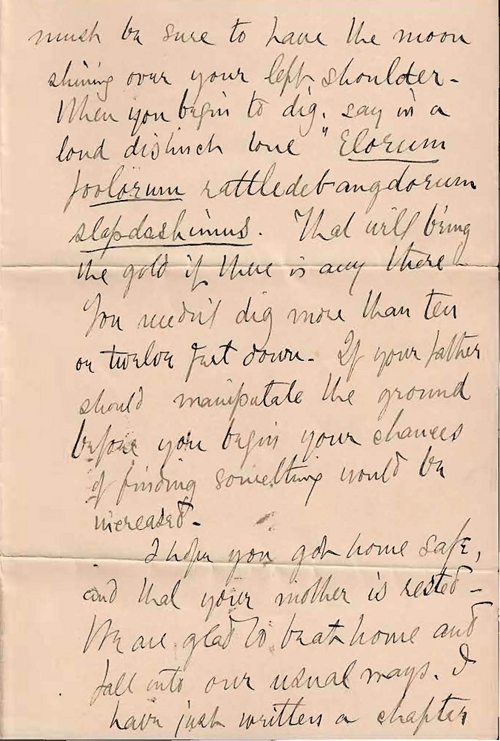 must be sure to have the moon
shining over your left shoulder -
When you begin to dig, say in a
loud distinct tone "Elorum
foolorum rattledebangdorum
slapdashimus. That will bring
the gold if there is any there -
You needn't dig more than ten
or twelve feet down - If your father
should manipulate the ground
before you begin your chances
of finding something would be
increased -
I hope you got home safe,
and that your mother is rested -
We are glad to be at home and
fall into our usual ways. I
have just written a chapter